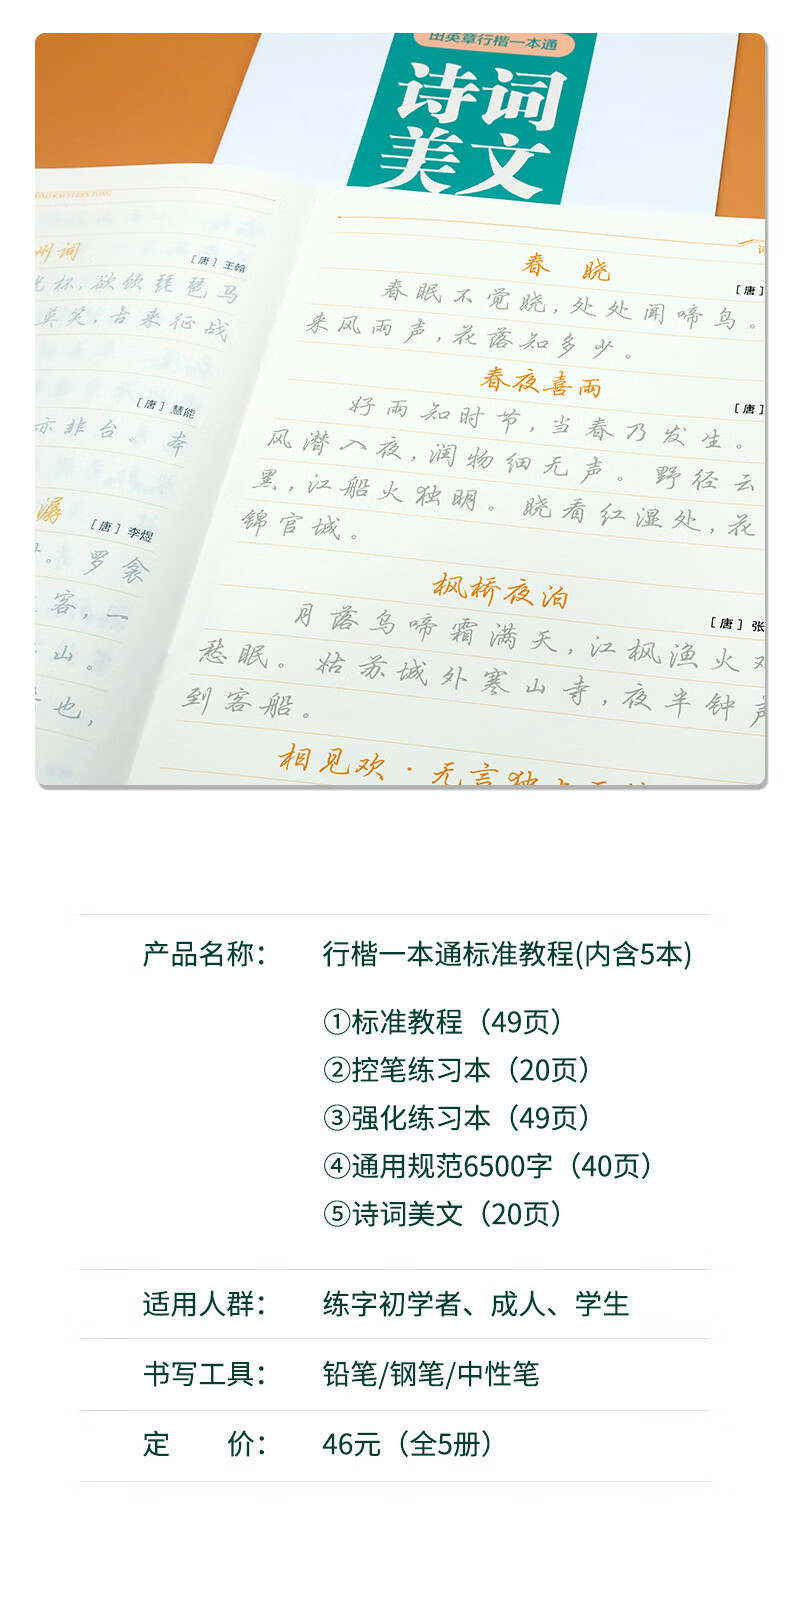 田英章行楷一本通
诗词
美文
XING KAI YI BEN TONG
州词
[唐]王翰
杯,欲饮琵琶马
莫笑,古来征战
[唐]慧能
亦非台。本
[唐]李煜
罗衾
客,一
山。
也,
春 晓
[唐]
春眠不觉晓,处处闻啼鸟。
来风雨声,花落知多少。
春夜喜雨
[唐]
好雨知时节,当春乃发生。
风潜入夜,润物细无声。野径云
黑,江船火独明。晓看红湿处,花
锦官城。
枫桥夜泊
[唐]张
月落乌啼霜满天,江枫渔火对
愁眠。姑苏城外寒山寺,夜半钟声
到客船。
相见欢·无言独上西楼
产品名称: 行楷一本通标准教程(内含5本)
①标准教程(49页)
②控笔练习本(20页)
③强化练习本(49页)
④通用规范6500字(40页)
⑤诗词美文(20页)
适用人群: 练字初学者、成人、学生
书写工具: 铅笔/钢笔/中性笔
定 价: 46元(全5册)